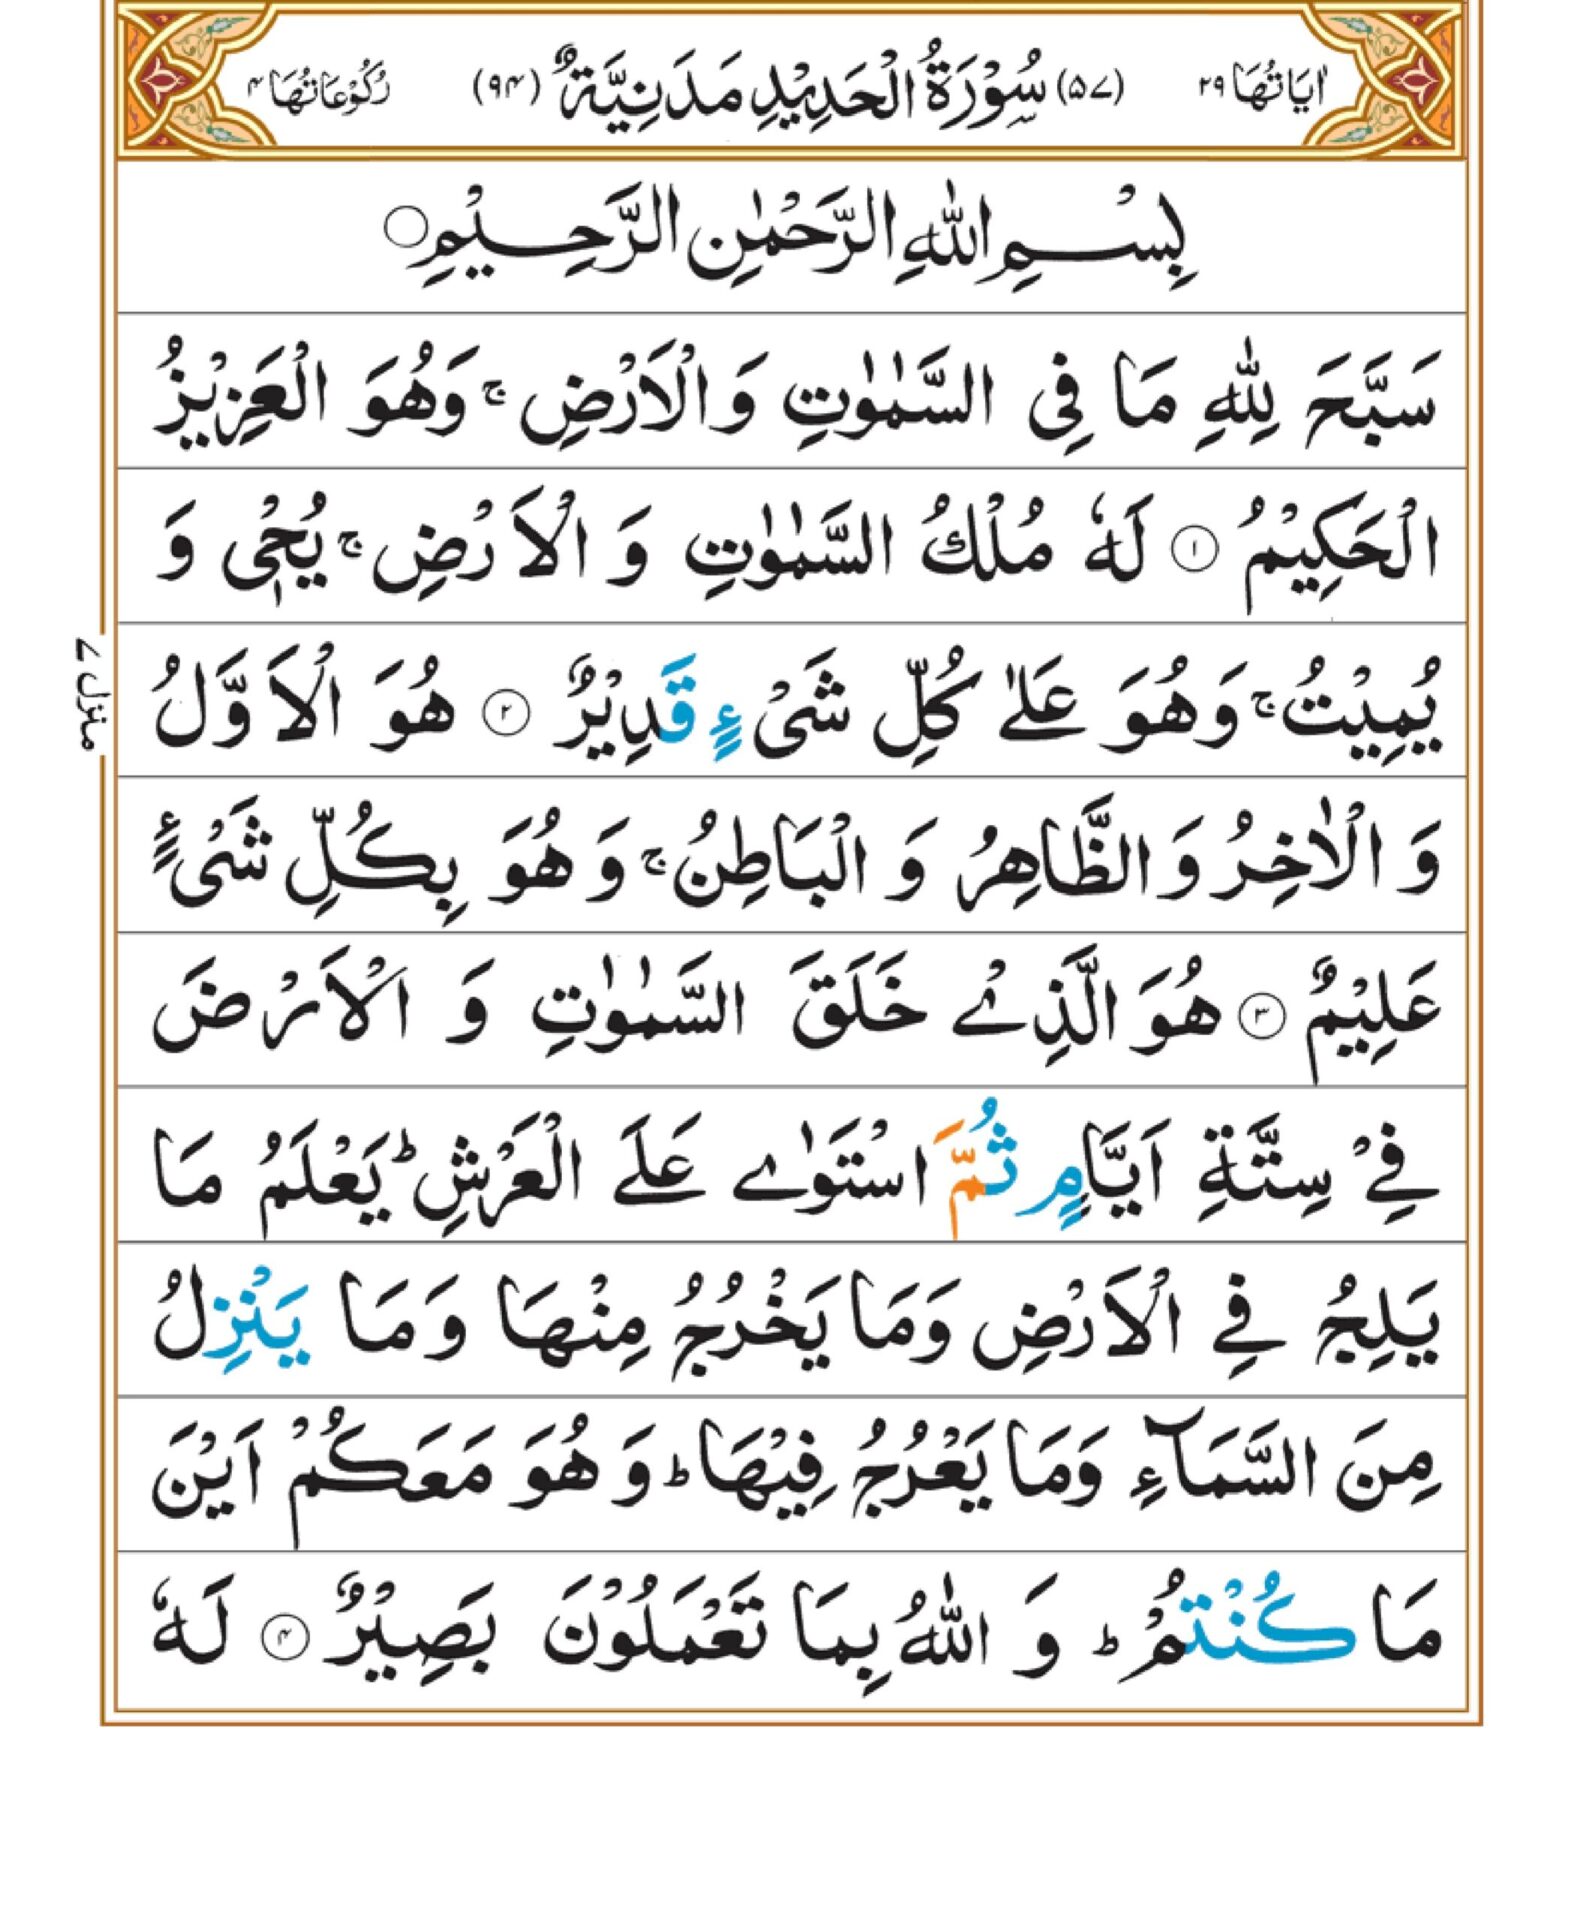 اٰيَاتُهَا ٢٩ (٥٧) سُوْرَةُ الْحَدِيْدِ مَدَنِيَّةٌ (٩٤) رُكُوْعَاتُهَا ٤
بِسْمِ اللّٰهِ الرَّحْمٰنِ الرَّحِيْمِ ۝
سَبَّحَ لِلّٰهِ مَا فِى السَّمٰوٰتِ وَالْاَرْضِ ۚ وَهُوَ الْعَزِيْزُ
الْحَكِيْمُ ١ لَهٗ مُلْكُ السَّمٰوٰتِ وَ الْاَرْضِ ۚ يُحْىٖ وَ
يُمِيْتُ ۚ وَهُوَ عَلٰى كُلِّ شَىْءٍ قَدِيْرٌ ٢ هُوَ الْاَوَّلُ
وَ الْاٰخِرُ وَ الظَّاهِرُ وَ الْبَاطِنُ ۚ وَ هُوَ بِكُلِّ شَىْءٍ
عَلِيْمٌ ٣ هُوَ الَّذِىْ خَلَقَ السَّمٰوٰتِ وَ الْاَرْضَ
فِىْ سِتَّةِ اَيَّامٍ ثُمَّ اسْتَوٰى عَلَى الْعَرْشِ ؕ يَعْلَمُ مَا
يَلِجُ فِى الْاَرْضِ وَمَا يَخْرُجُ مِنْهَا وَمَا يَنْزِلُ
مِنَ السَّمَآءِ وَمَا يَعْرُجُ فِيْهَا ؕ وَ هُوَ مَعَكُمْ اَيْنَ
مَا كُنْتُمْ ؕ وَ اللّٰهُ بِمَا تَعْمَلُوْنَ بَصِيْرٌ ٤ لَهٗ
منزل ٧